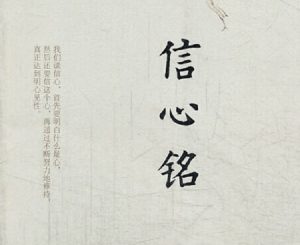 信心铭
我们谈信心，首先要明白什么是心，
然后还要信这个心，再通过不断努力地修持，
真正达到明心见性。